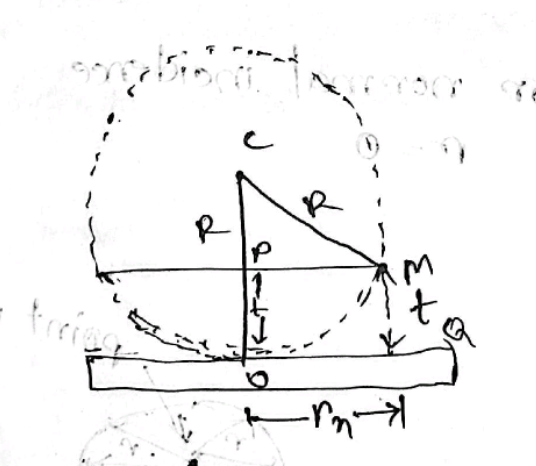 C
R
R
P
M
t
t
Q
O
rn